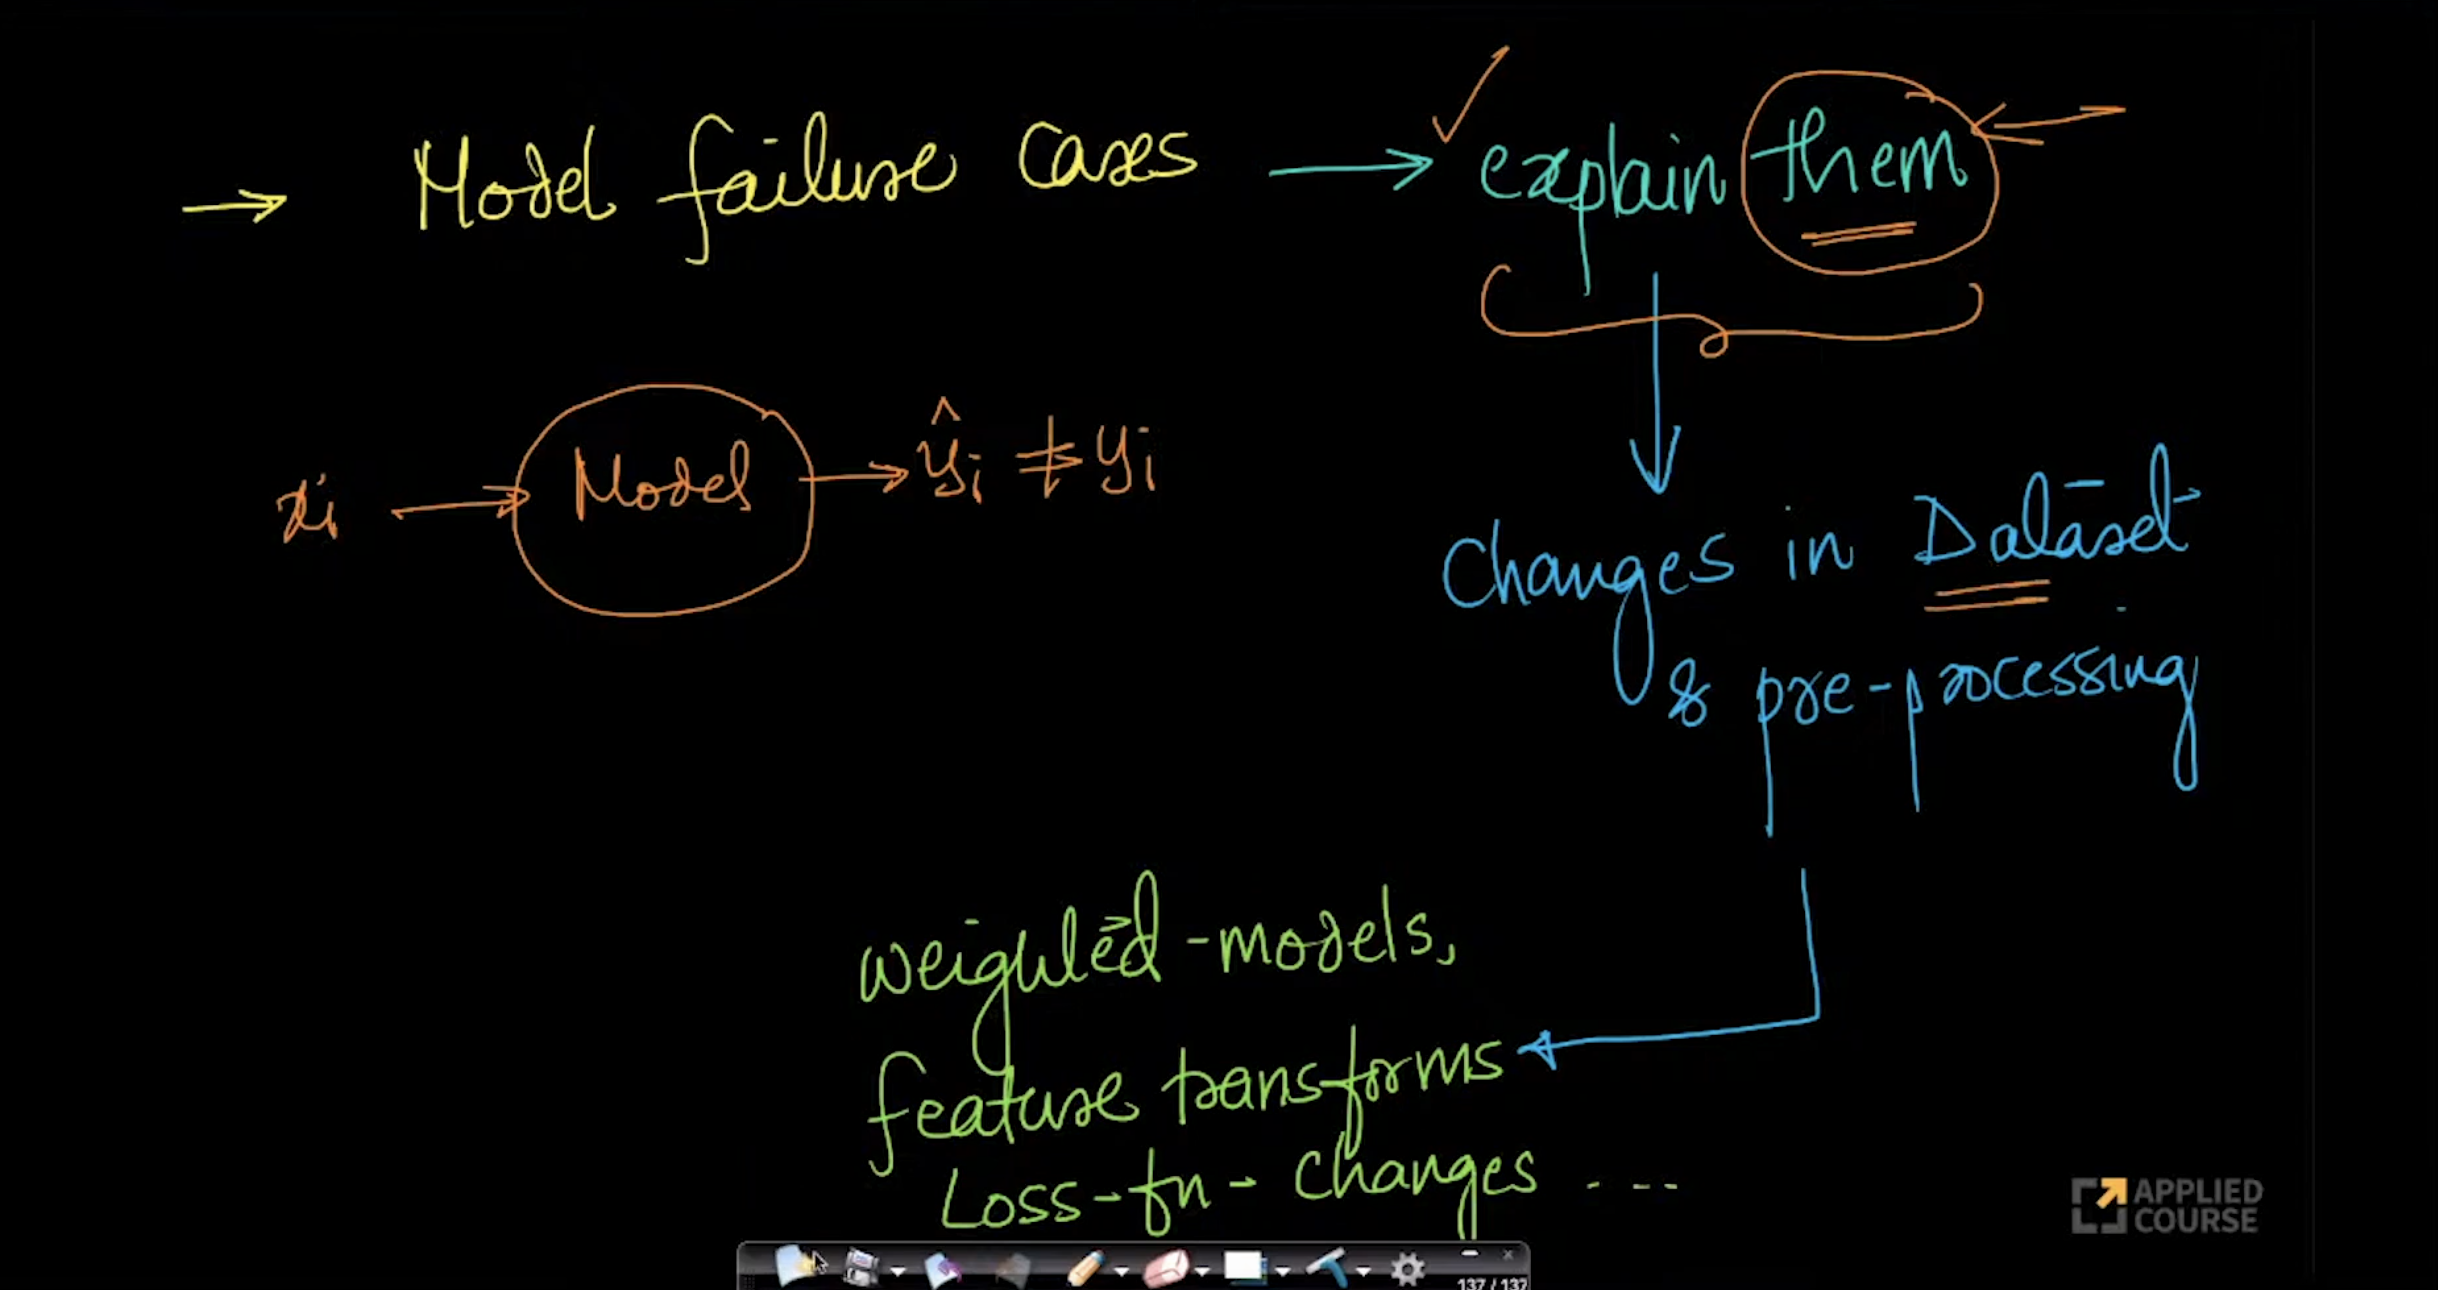 → Model failure cases → explain them
xi → Model → ŷi ≠ yi
changes in Dataset
& pre-processing
weighted-models,
feature transforms
Loss-fn-changes ----
APPLIED
COURSE
137 / 137